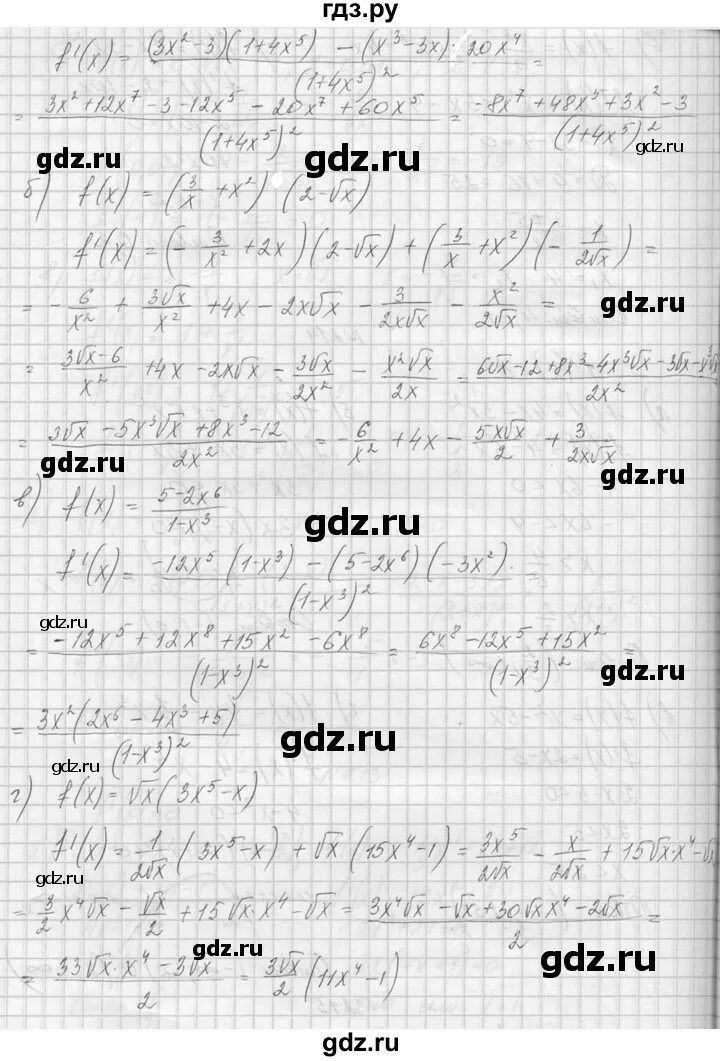 гдз.ру
f'(x) = ((3x² - 3)(1+4x⁵) - (x³ - 3x)·20x⁴)/(1+4x⁵)² =
= (3x² + 12x⁷ - 3 - 12x⁵ - 20x⁷ + 60x⁵)/(1+4x⁵)² = (-8x⁷ + 48x⁵ + 3x² - 3)/(1+4x⁵)²
gdz.ru gdz.ru gdz.ru
б) f(x) = (3/x + x²)(2-√x)
gdz.ru
f'(x) = (- 3/x² + 2x)(2-√x) + (3/x + x²)(- 1/(2√x)) =
= - 6/x² + 3√x/x² + 4x - 2x√x - 3/(2x√x) - x²/(2√x) =
gdz.ru
= (3√x - 6)/x² + 4x - 2x√x - 3√x/(2x²) - x²√x/(2x) = (6√x - 12 + 8x³ - 4x³√x - 3√x - x³√x)/(2x²)
gdz.ru
= (3√x - 5x³√x + 8x³ - 12)/(2x²) = - 6/x² + 4x - 5x√x/2 + 3/(2x√x)
gdz.ru gdz.ru
в) f(x) = (5-2x⁶)/(1-x³)
gdz.ru
f'(x) = (-12x⁵(1-x³) - (5-2x⁶)(-3x²))/(1-x³)² =
gdz.ru
= (-12x⁵ + 12x⁸ + 15x² - 6x⁸)/(1-x³)² = (6x⁸ - 12x⁵ + 15x²)/(1-x³)² =
gdz.ru gdz.ru
= 3x²(2x⁶ - 4x³ + 5)/(1-x³)²
gdz.ru gdz.ru
г) f(x) = √x(3x⁵ - x)
f'(x) = 1/(2√x) (3x⁵ - x) + √x(15x⁴ - 1) = 3x⁵/(2√x) - x/(2√x) + 15√x·x⁴ - √x
= 3/2 x⁴√x - √x/2 + 15√x·x⁴ - √x = (3x⁴√x - √x + 30√x x⁴ - 2√x)/2 =
gdz.ru gdz.ru
= (33√x·x⁴ - 3√x)/2 = 3√x/2 (11x⁴ - 1)
gdz.ru